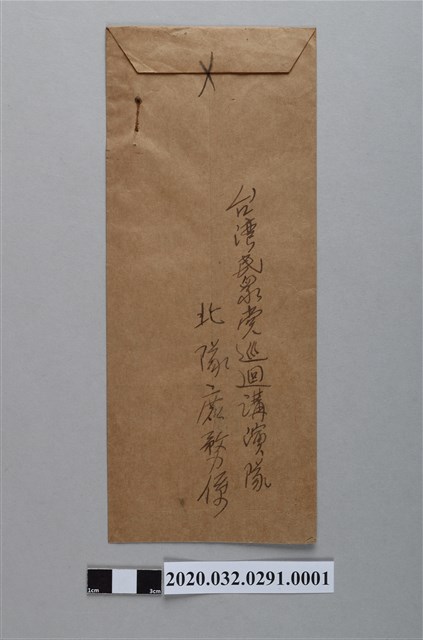 台湾民衆党巡迴講演隊
北隊庶務係
1cm 3cm
2020.032.0291.0001